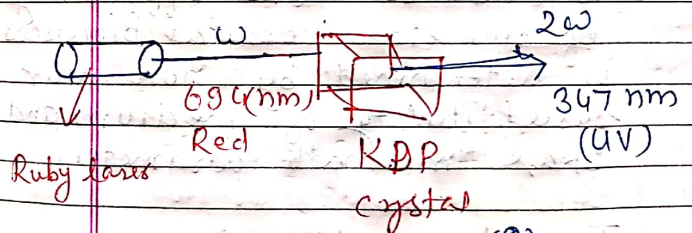 ω
2ω
694(nm)
347 nm
Red
(UV)
Ruby laser
KDP
crystal